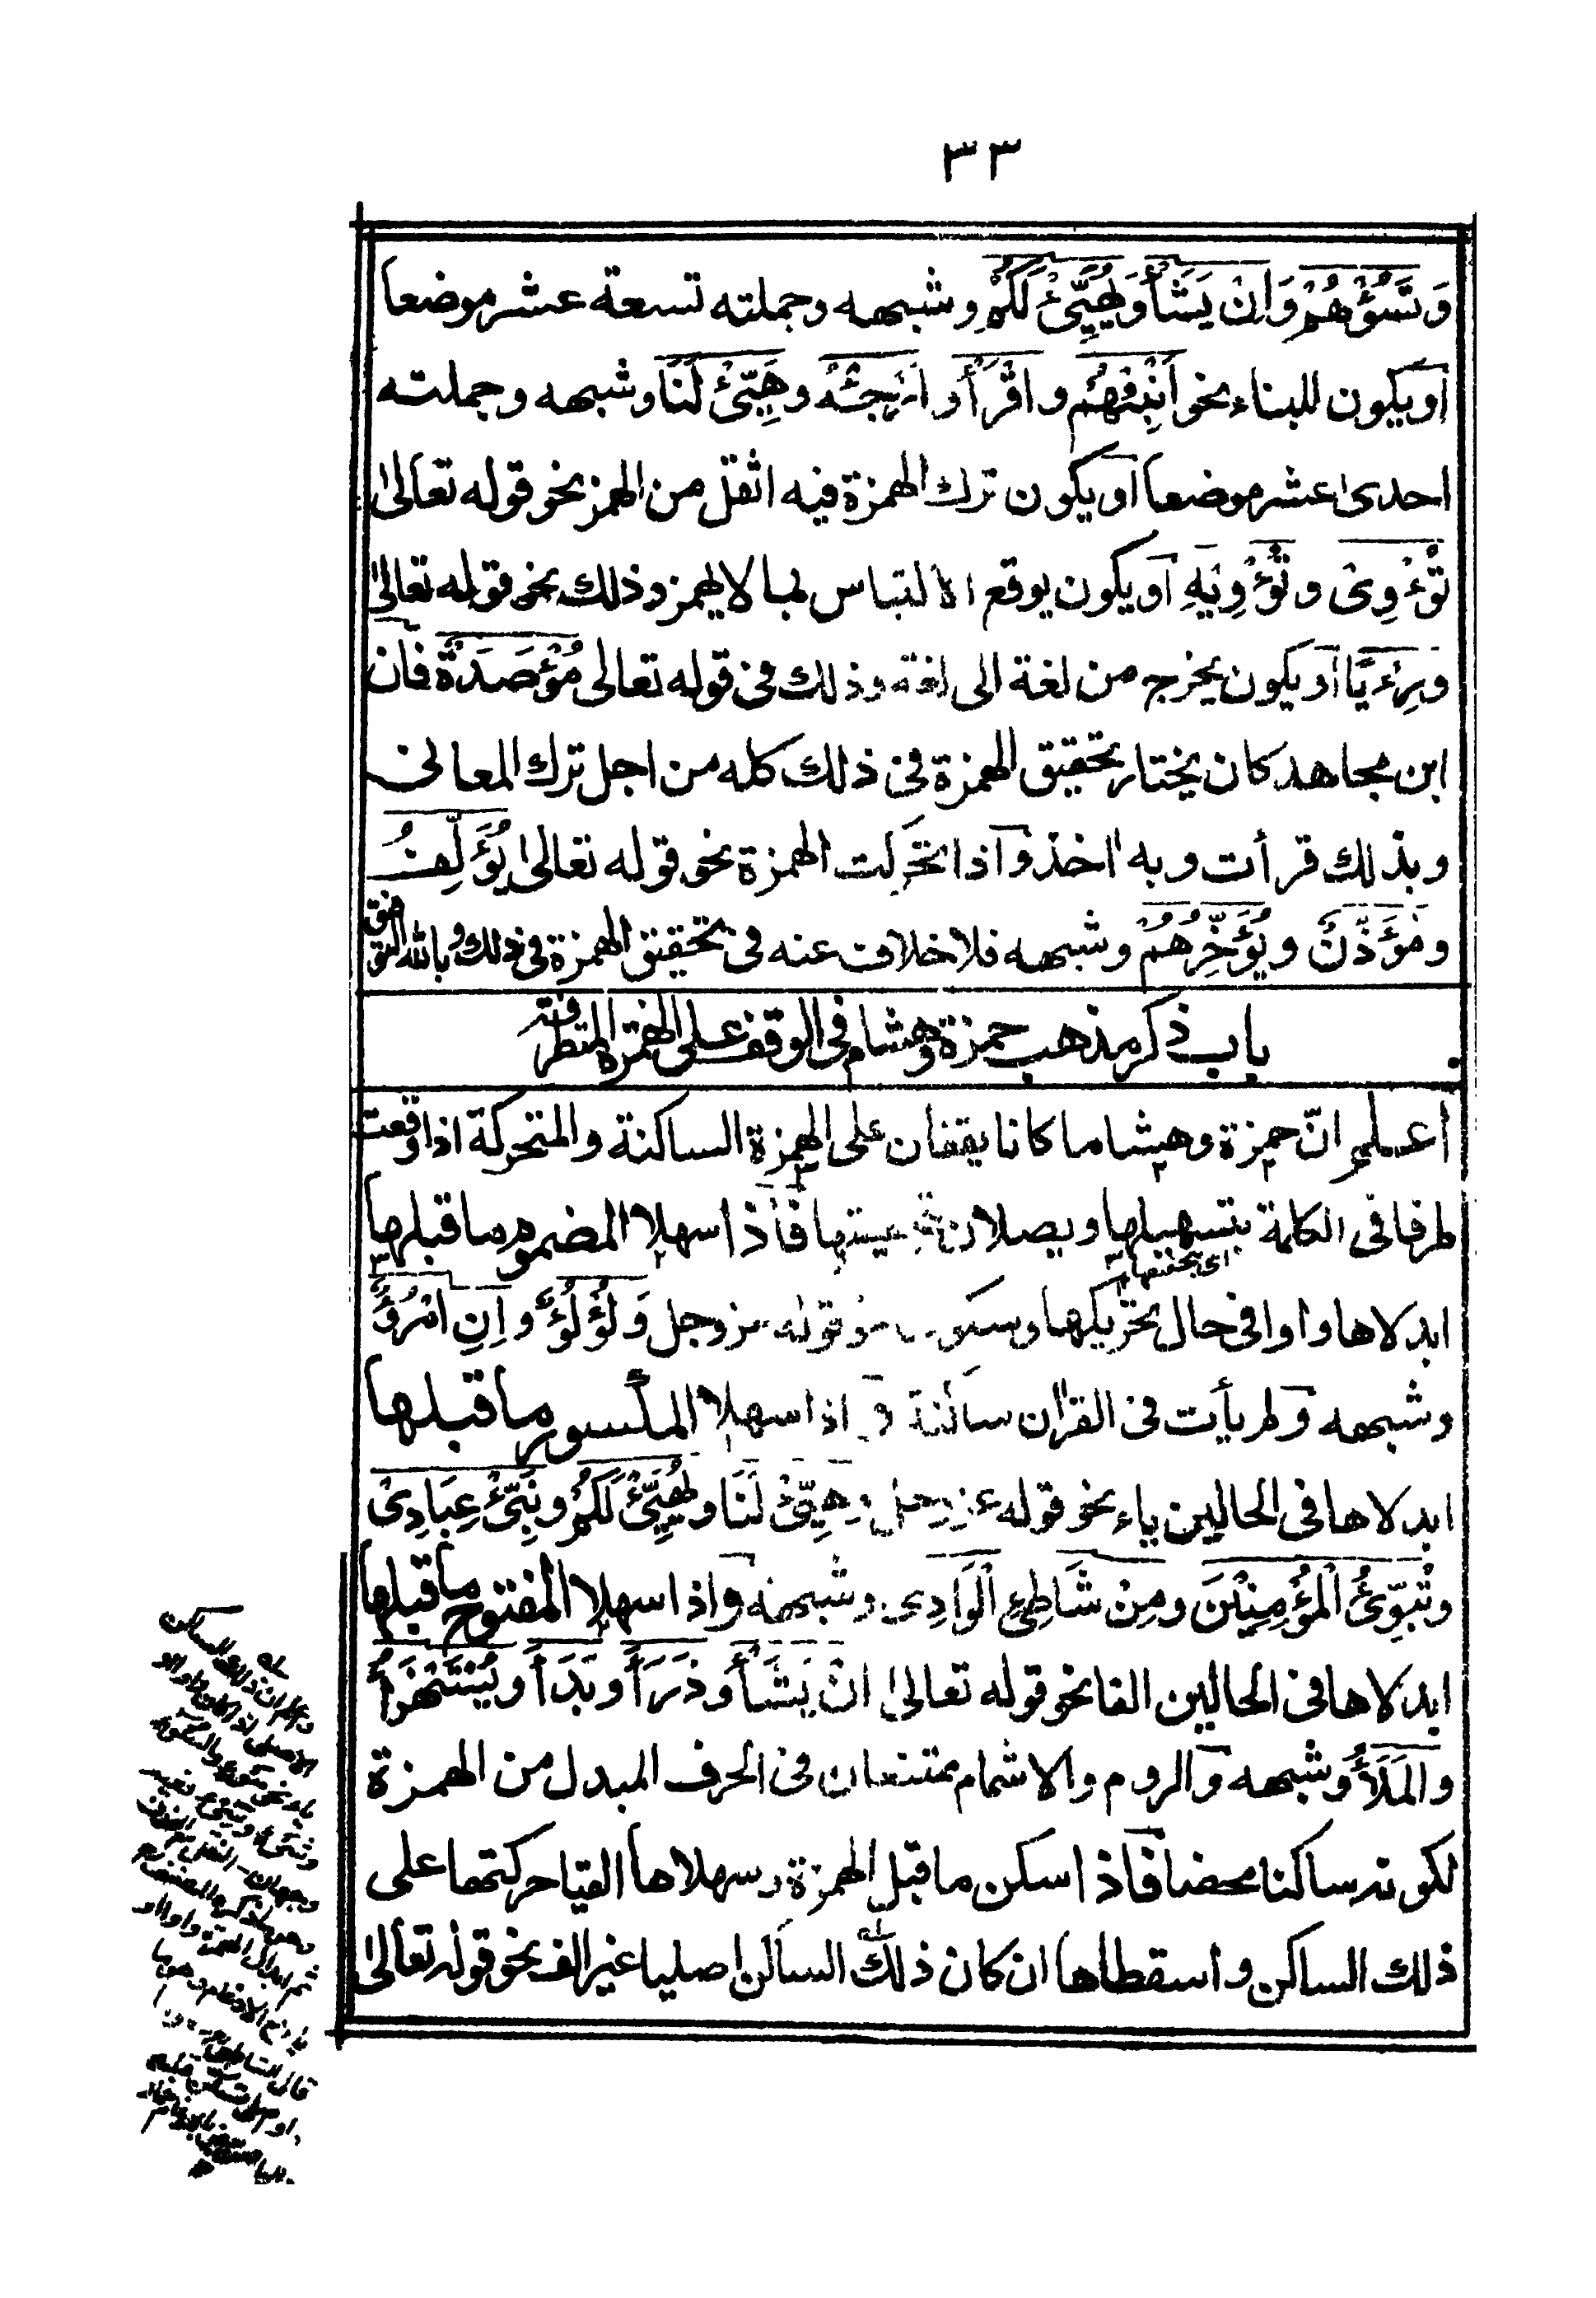 ٣٣
وَتَسُؤْهُمْ وَاِنْ يَشَأْ وَيُهَيِّئْ لَكُمْ وشبهه وجملته تسعة عشر موضعا
او يكون للبناء نحو اَنْبِئْهُمْ و اقْرَأْ و اَرْجِئْهُ وهَيِّئْ لَنَا وشبهه وجملته
احدى عشر موضعا او يكون ترك الهمزة فيه اثقل من الهمز نحو قوله تعالى
تُؤْوِىْ و تُؤْوِيْهِ او يكون يوقع الالتباس بما لا يهمز وذلك نحو قوله تعالى
ورِءْيًا او يكون يخرج من لغة الى لغة وذلك فى قوله تعالى مُؤْصَدَةٌ فان
ابن مجاهد كان يختار تحقيق الهمزة فى ذلك كله من اجل ترك المعانى
وبذلك قرأت وبه اخذ واذا تحركت الهمزة نحو قوله تعالى يُؤَلِّفُ
ومُؤَذِّنٌ ويُؤَخِّرُهُمْ وشبهه فلا خلاف عنه فى تحقيق الهمزة فى ذلك و بالله التوفيق
باب ذكر مذهب حمزة وهشام فى الوقف على الهمزة المتطرفة
اعلم انّ حمزة وهشاما كانا يقفان على الهمزة الساكنة والمتحركة اذا وقعت
طرفا فى الكلمة بتسهيلها ويصلان بتحقيقها فاذا سهلا المضموم ما قبلها
اى بتحقيقها
ابدلاها واوا فى حال تحريكها وسكونها نحو قوله عز وجل وَلُؤْلُؤٌ و اِنِ امْرُؤٌ
وشبهه ولم يأت فى القران ساكنة واذا سهلا المكسور ما قبلها
ابدلاها فى الحالين ياء نحو قوله عز وجل وهَيِّئْ لَنَا ويُهَيِّئْ لَكُمْ ونَبِّئْ عِبَادِىْ
وتُبَوِّئُ الْمُؤْمِنِيْنَ ومِنْ شَاطِئِ الْوَادِى وشبهه واذا سهلا المفتوح ما قبلها
ابدلاها فى الحالين الفا نحو قوله تعالى اِنْ يَشَأْ وذَرَأَ وبَدَأَ ويُسْتَهْزَأُ
والمَلَأُ وشبهه والروم والاشمام ممتنعان فى الحرف المبدل من الهمزة
لكونه ساكنا محضا فاذا سكن ما قبل الهمزة وسهلاها القيا حركتها على
ذلك الساكن واسقطاها ان كان ذلك الساكن اصليا غير الف نحو قوله تعالى